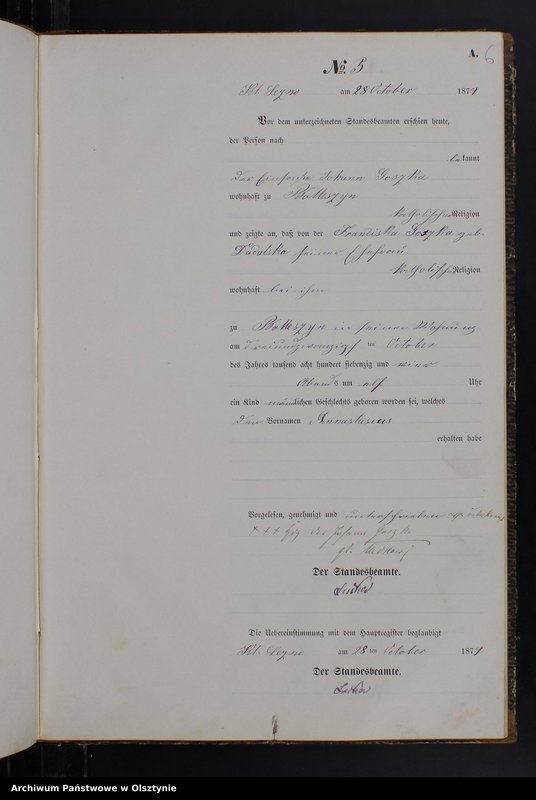 A. 6
No. 5
Kl. Leyno am 28 October 1874
Vor dem unterzeichneten Standesbeamten erschien heute,
der Person nach
bekannt
der Johann Goszka
wohnhaft zu
katholischer Religion
und zeigte an, daß von der Franciska Goszka geb.
Dudalska seiner Ehefrau
katholischer Religion
wohnhaft bei ihm
zu in seiner Wohnung
am dreiundzwanzigsten October
des Jahres tausend acht hundert siebenzig und vier
Abends um elf Uhr
ein Kind männlichen Geschlechts geboren worden sei, welches
den Vornamen Annastasius
erhalten habe
Vorgelesen, genehmigt und unterschrieben
+ + + des Johann Goszka
Der Standesbeamte.
Die Uebereinstimmung mit dem Hauptregister beglaubigt
Kl. Leyno am 28 ten October 1874
Der Standesbeamte.
Archiwum Państwowe w Olsztynie